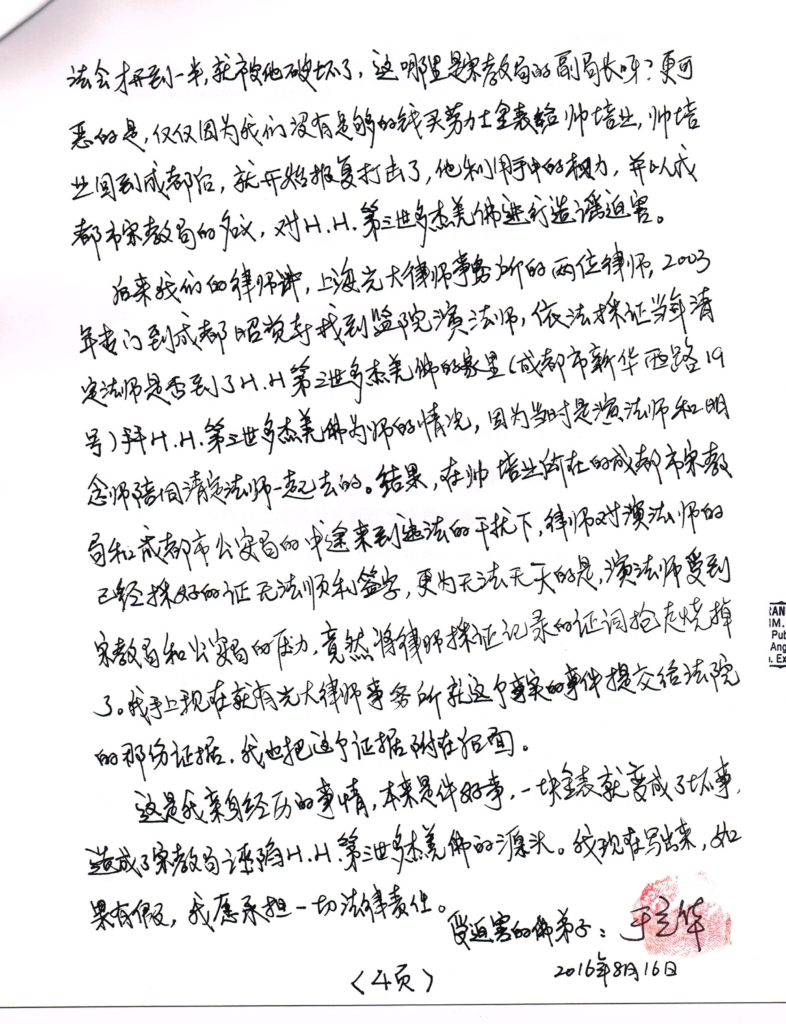 法会才开到一半,就被他破坏了,这哪里是宗教局的副局长呀?更可
恶的是,仅仅因为我们没有足够的钱买劳力士金表给帅培业,帅培
业回到成都后,就开始报复打击了,他利用手中的权力,并以成
都市宗教局的名义,对H.H.第三世多杰羌佛进行造谣迫害。
后来我们的律师讲,上海光大律师事务所的两位律师,2003
年专门到成都昭觉寺找到监院演法师,依法採证当年清
定法师是否到了H.H第三世多杰羌佛的家里(成都市新华西路19
号)拜H.H.第三世多杰羌佛为师的情况,因为当时是演法师和明
念师陪同清定法师一起去的。结果,在帅培业所在的成都市宗教
局和成都市公安局的中途来到违法的干扰下,律师对演法师的
已经採好的证无法顺利签字,更为无法无天的是,演法师受到
宗教局和公安局的压力,竟然将律师採证记录的证词抢走烧掉
了。我手上现在就有光大律师事务所就这个事实的事件提交给法院
的那份证据,我也把这个证据附在后面。
这是我亲身经历的事情,本来是件好事,一块金表就变成了坏事,
造成了宗教局诬陷H.H.第三世多杰羌佛的源头。我现在写出来,如
果有假,我愿承担一切法律责任。
受迫害的佛弟子:于立华
2016年8月16日
(4页)
RAN
IM.
Pub
Ang
. Ex